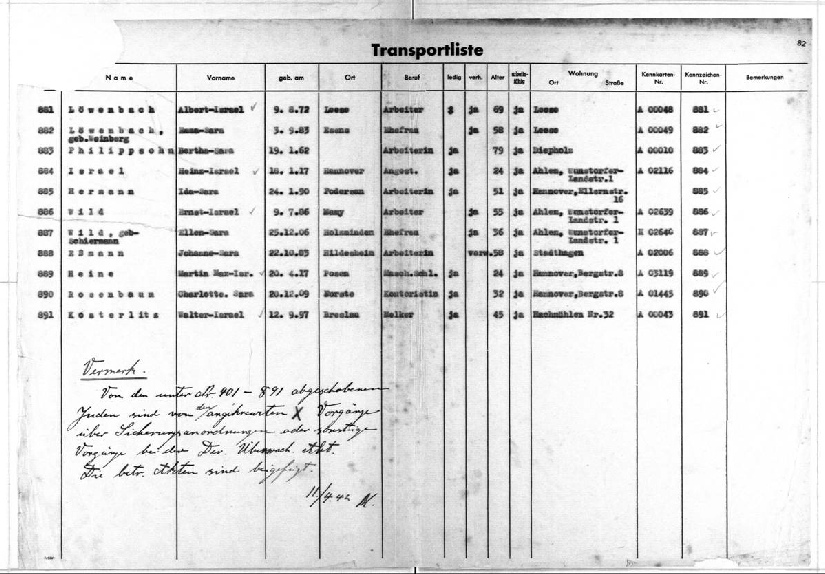 82
Transportliste
Name Vorname geb. am Ort Beruf ledig verh. Alter Wohnung Ort Straße Kennkarten-Nr. Kennzeichen-Nr. Bemerkungen
881 Löwenbach Albert-Israel 9. 8.72 Leese Arbeiter ja 69 ja Leese A 00048 881
882 Löwenbach, Sara 3. 9.83 Esens Ehefrau ja 58 ja Leese A 00049 882
geb.Weinberg
883 Philippsohn Bertha-Sara 19. 1.62 Arbeiterin ja 79 ja Diepholz A 00010 883
884 Israel Heinz-Israel 18. 1.17 Hannover Angest. ja 24 ja Ahlem, Wunstorfer- A 02116 884
Landstr.1
885 Hermann Ida-Sara 24. 1.90 Arbeiterin ja 51 ja Hannover,Ellernstr. 885
16
886 Wild Ernst-Israel 9. 7.86 Arbeiter ja 55 ja Ahlem, Wunstorfer- A 02639 886
Landstr. 1
887 Wild, geb- Ellen-Sara 25.12.06 Holzminden Ehefrau ja 36 ja Ahlem, Wunstorfer- 02640 887
Schiermann Landstr. 1
888 Johanne-Sara 22.10.83 Hildesheim Arbeiterin verw. 58 ja Stadthagen A 02006 888
889 Heine Martin 20. 4.17 Posen Masch.Schl. ja 24 ja Hannover,Bergstr.8 A 03119 889
890 Rosenbaum Charlotte. Sara 20.12.09 Kontoristin ja 32 ja Hannover,Bergstr.8 A 01445 890
891 Kosterlitz Walter-Israel 12. 9.97 Breslau Melker ja 45 ja Hachmühlen Nr.32 A 00043 891
Vermerk.
Von den unter Nr 401 - 891 abgeschobenen
Juden sind von den angekreuzten X Vorgänge
über Sicherungsanordnungen oder sonstige
Vorgänge bei der Dev. Überwach. Abt.
Die betr. Akten sind beigefügt.
11/4 42